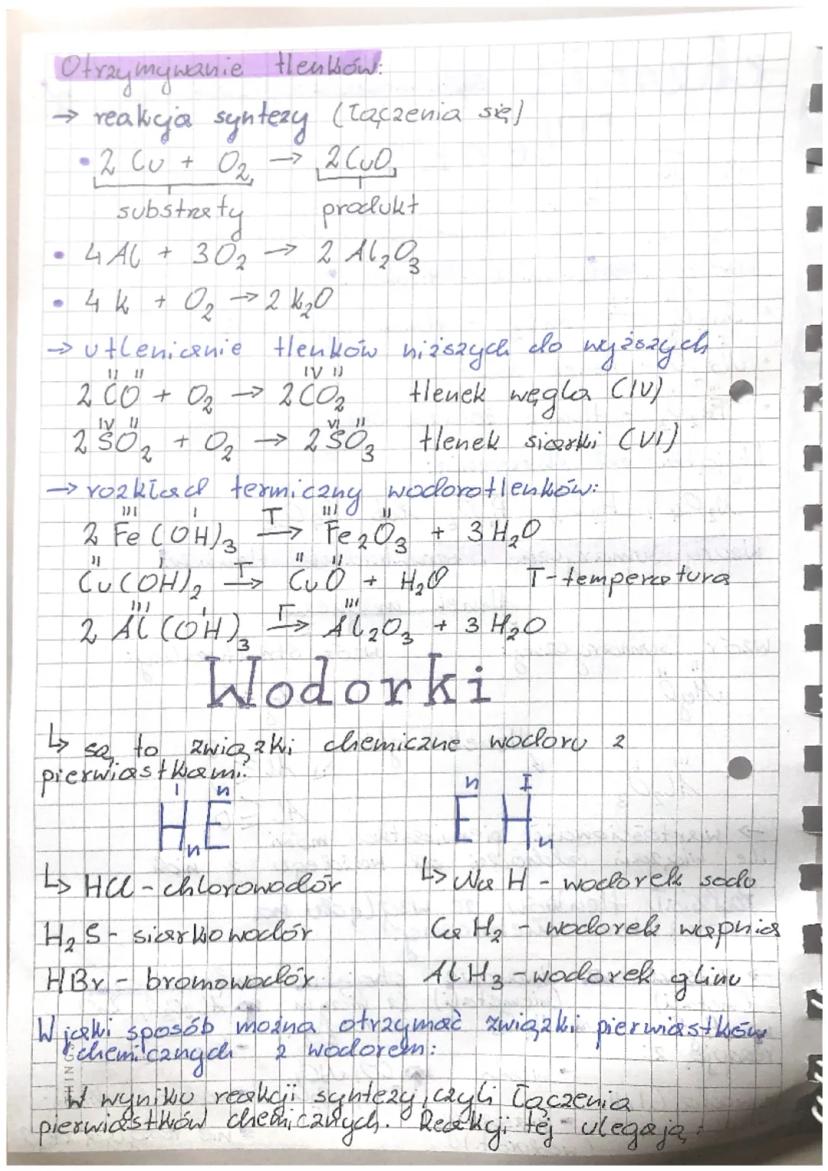 Otrzymywanie tlenków:
→ reakcja syntezy (łączenia się)
• 2 Cu + O₂ → 2CuO
substraty produkt
• 4 Al + 3O₂ → 2 Al₂O₃
• 4 K + O₂ → 2 K₂O
→ utlenienie tlenków niższych do wyższych
II II IV II
2 CO + O₂ → 2CO₂ tlenek węgla (IV)
IV II VI II
2 SO₂ + O₂ → 2 SO₃ tlenek siarki (VI)
→ rozkład termiczny wodorotlenków:
III I T III II
2 Fe(OH)₃ → Fe₂O₃ + 3 H₂O
II I T II II
Cu(OH)₂ → CuO + H₂O T-temperatura
III I T III
2 Al(OH)₃ → Al₂O₃ + 3 H₂O
Wodorki
↳ są to związki chemiczne wodoru z
pierwiastkami:
I n n I
HₙE EHₙ
↳ HCl - chlorowodór ↳ NaH - wodorek sodu
H₂S - siarkowodór CaH₂ - wodorek wapnia
HBr - bromowodór AlH₃ - wodorek glinu
W jaki sposób można otrzymać związki pierwiastków
chemicznych z wodorem:
W wyniku reakcji syntezy, czyli łączenia
pierwiastków chemicznych. Reakcji tej ulegają: